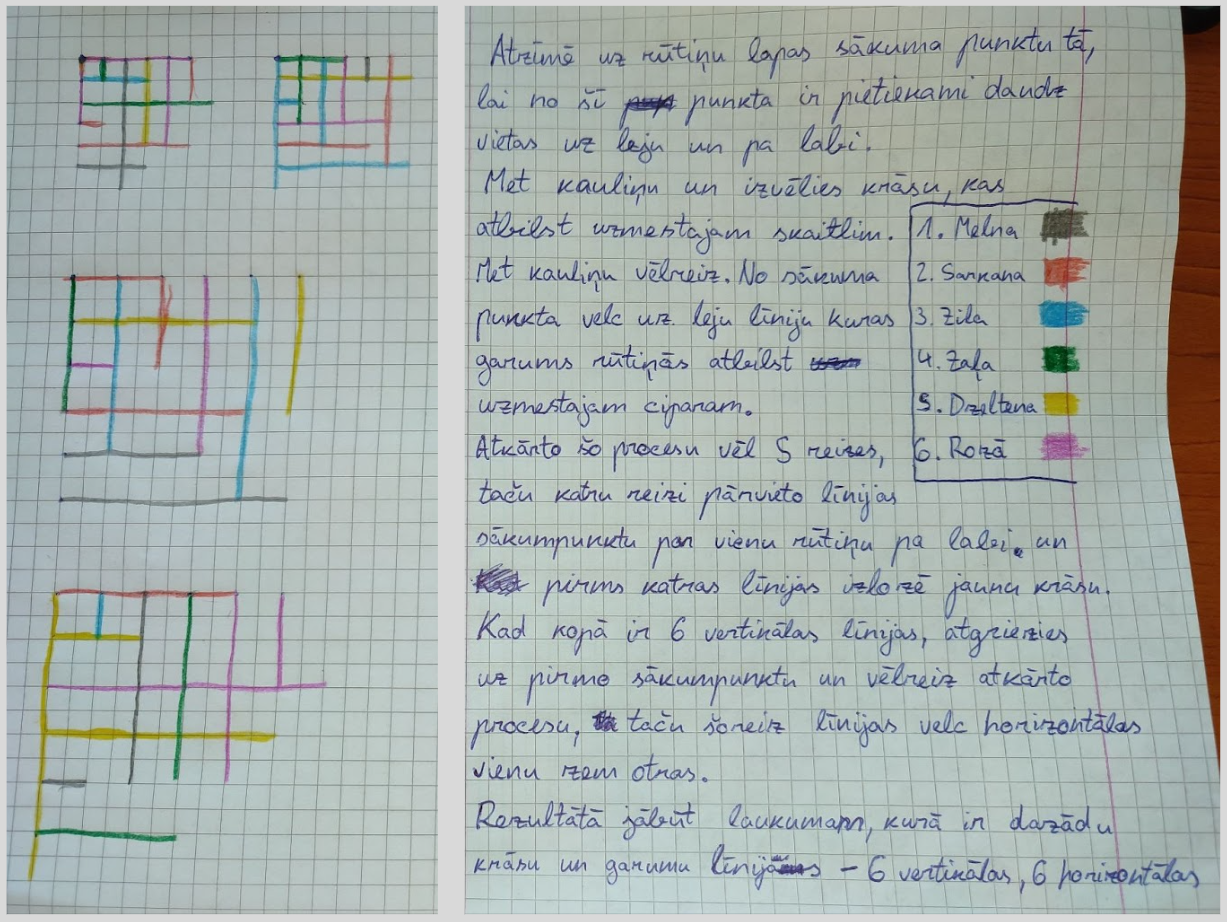 Atzīmē uz rūtiņu lapas sākuma punktu tā,
lai no šī punkta ir pietiekami daudz
vietas uz leju un pa labi.
Met kauliņu un izvēlies krāsu, kas
atbilst uzmestajam skaitlim.
1. Melna
Met kauliņu vēlreiz. No sākuma
2. Sarkana
punkta velc uz leju līniju kuras
3. Zila
garums rūtiņās atbilst
4. Zaļa
uzmestajam ciparam.
5. Dzeltena
Atkārto šo procesu vēl 5 reizes,
6. Rozā
taču katru reizi pārvieto līnijas
sākumpunktu par vienu rūtiņu pa labi. un
pirms katras līnijas izlozē jaunu krāsu.
Kad kopā ir 6 vertikālas līnijas, atgriezies
uz pirmo sākumpunktu un vēlreiz atkārto
procesu, taču šoreiz līnijas velc horizontālas
vienu zem otras.
Rezultātā jābūt laukumam, kurā ir dažādu
krāsu un garumu līnijas - 6 vertikālas, 6 horizontālas